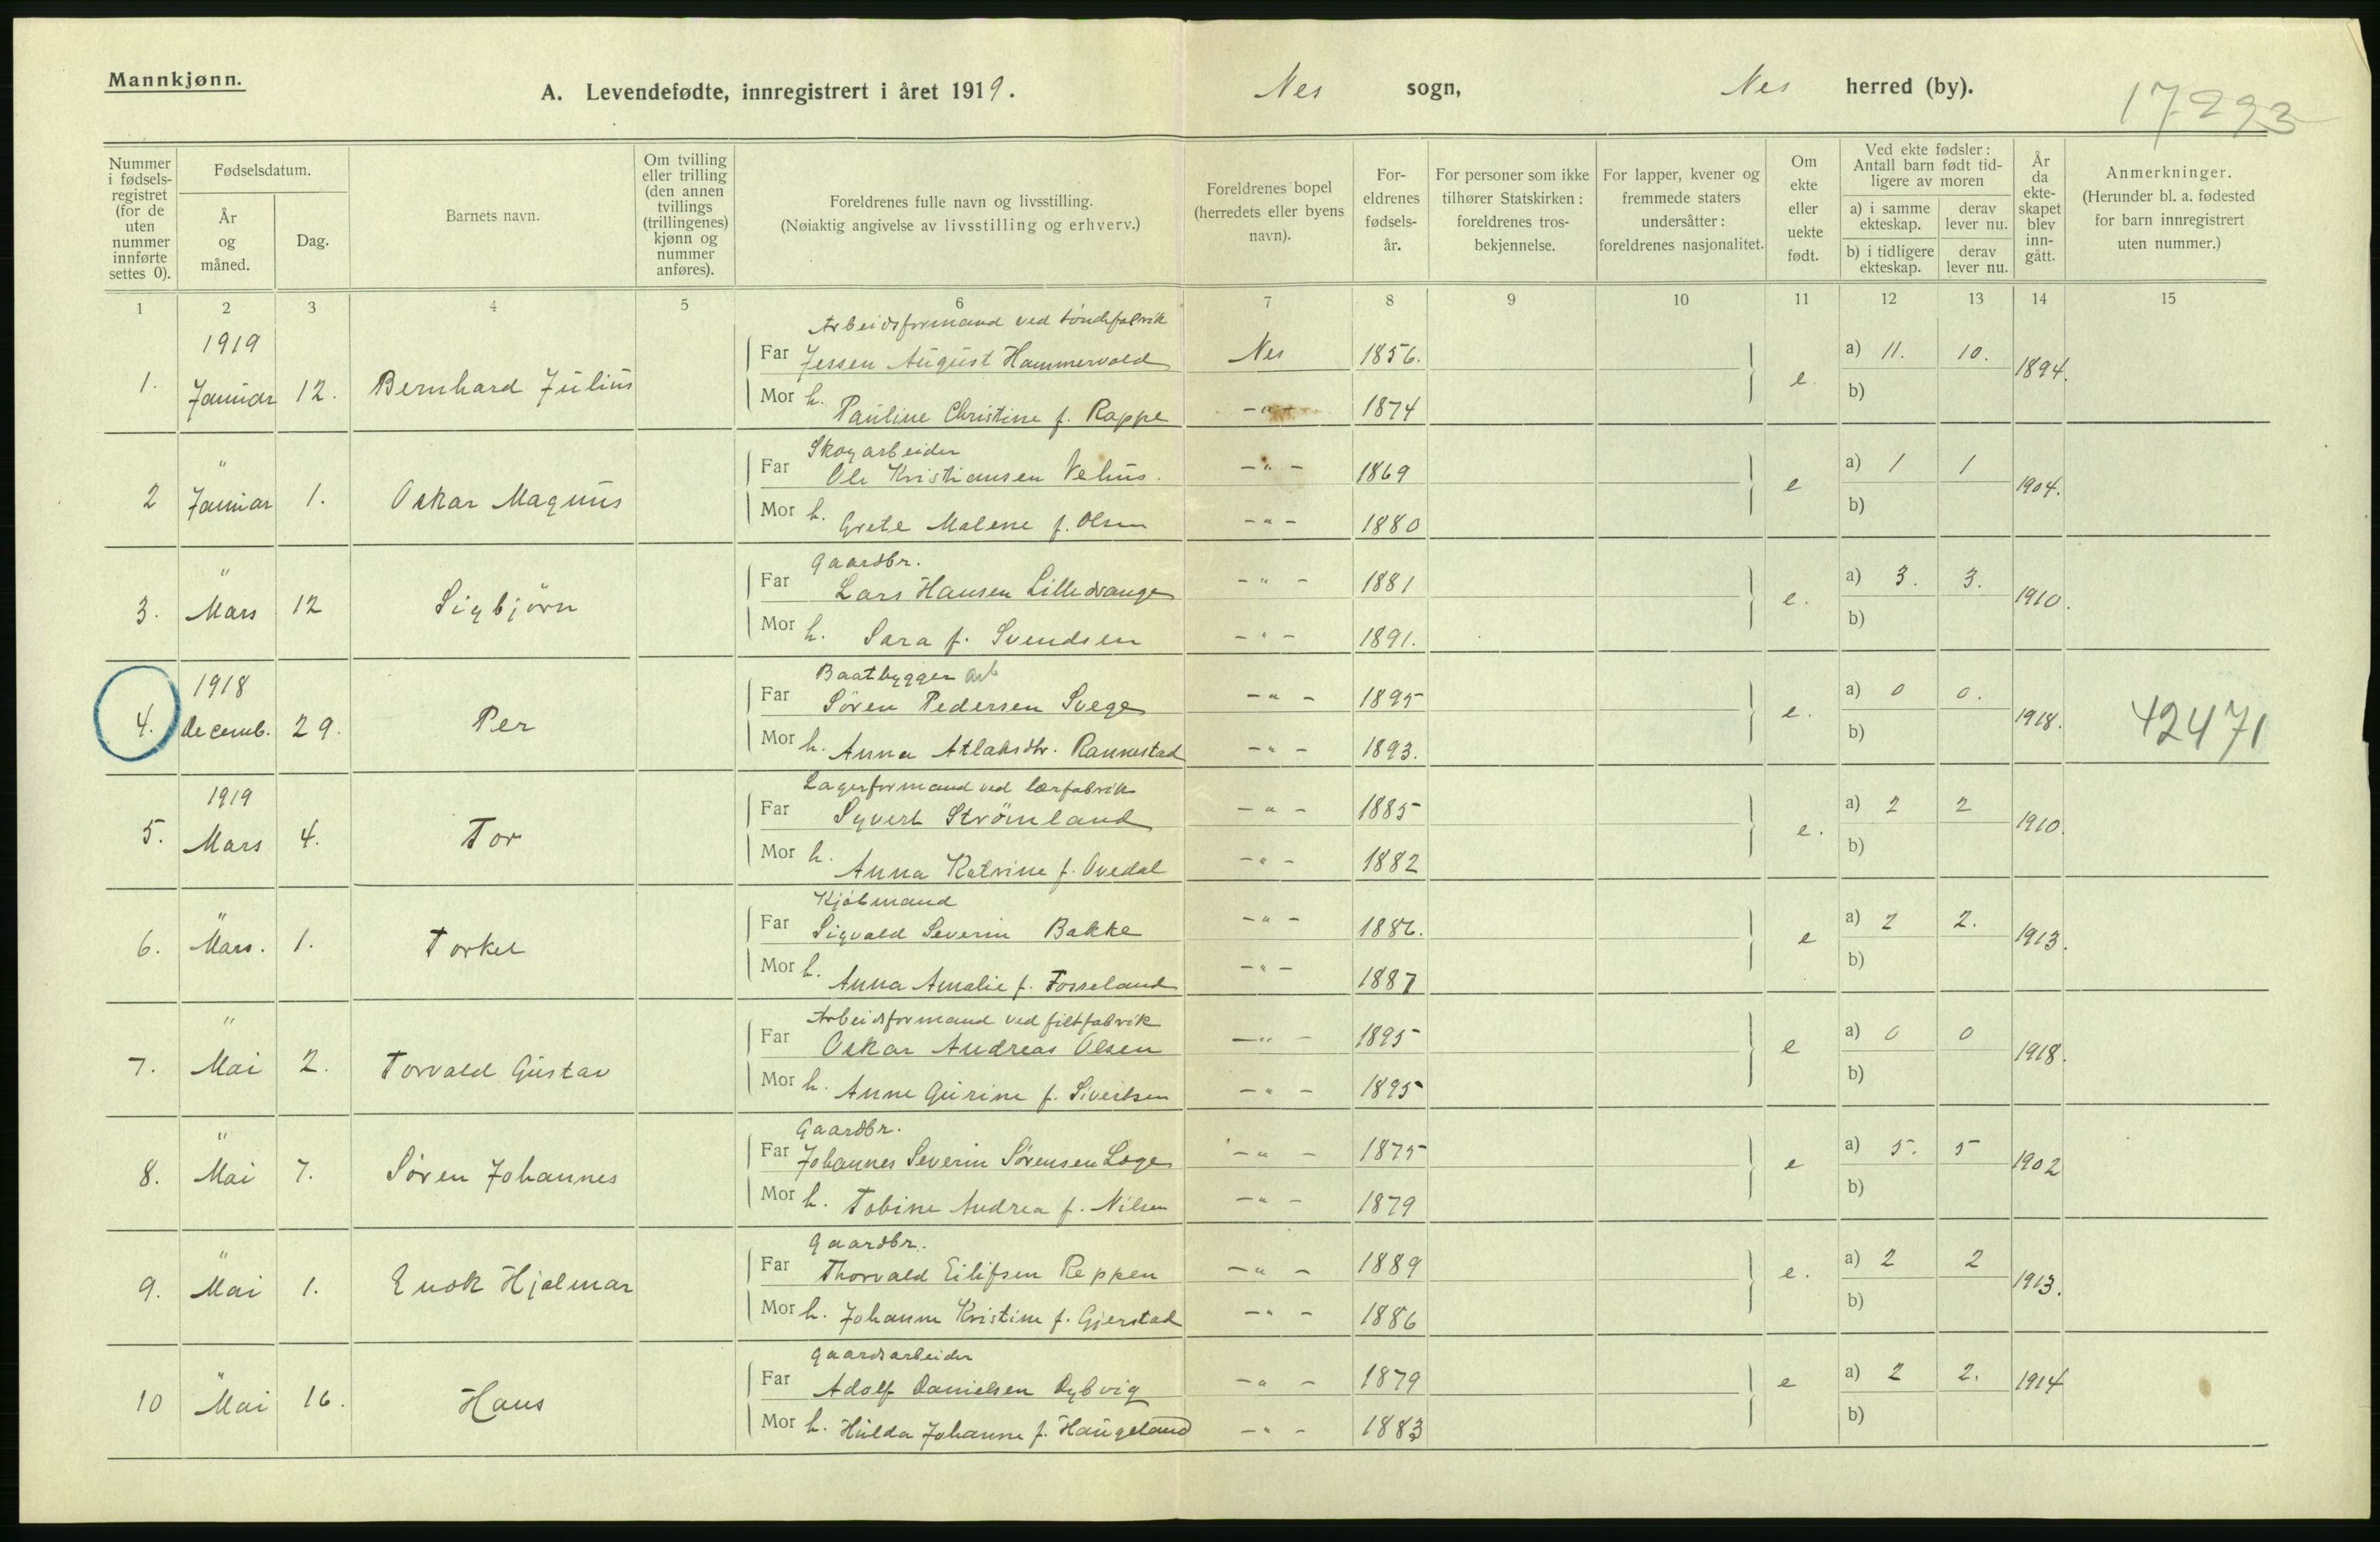 Mannkjønn.
A. Levendefødte, innregistrert i året 1919. Nes sogn, Nes herred (by).
17293
Nummer i fødsels-registret (for de uten nummer innførte settes 0).
Fødselsdatum.
År og måned.
Dag.
Barnets navn.
Om tvilling eller trilling (den annen tvillings (trillingenes) kjønn og nummer anføres).
Foreldrenes fulle navn og livsstilling.
(Nøiaktig angivelse av livsstilling og erhverv.)
Foreldrenes bopel (herredets eller byens navn).
For-eldrenes fødsels-år.
For personer som ikke tilhører Statskirken: foreldrenes tros-bekjennelse.
For lapper, kvener og fremmede staters undersåtter: foreldrenes nasjonalitet.
Om ekte eller uekte født.
Ved ekte fødsler: Antall barn født tid-ligere av moren
a) i samme ekteskap. derav lever nu.
b) i tidligere ekteskap. derav lever nu.
År da ekte-skapet blev inn-gått.
Anmerkninger.
(Herunder bl. a. fødested for barn innregistrert uten nummer.)
1 2 3 4 5 6 7 8 9 10 11 12 13 14 15
Arbeidsformand ved töndefabrik
1. 1919 Januar 12. Bernhard Julius Far Jessen August Hammervold Nes 1856. e. a) 11. 10. 1894.
Mor h. Pauline Christine f. Rappe -"- 1874 b)
Skogarbeider
2 " Januar 1. Oskar Magnus Far Ole Kristiansen Vehus. -"- 1869 e a) 1 1 1904.
Mor h. Grete Malene f. Olsen -"- 1880 b)
Gaardbr.
3. " Mars 12 Sigbjörn Far Lars Hansen Lilledrange -"- 1881 e. a) 3. 3. 1910.
Mor h. Sara f. Svendsen -"- 1891. b)
Baatbygger arb
4. 1918 Decemb. 29. Per Far Sören Pedersen Svege -"- 1895 e. a) 0 0. 1918. 42471
Mor h. Anna Atlaksdtr. Rannestad -"- 1893. b)
Lagerformand ved lærfabrik
5. 1919 Mars 4. Tor Far Syvert Strömland -"- 1885 e. a) 2 2 1910.
Mor h. Anna Katrine f. Ovedal -"- 1882 b)
Kjöbmand
6. " Mars. 1. Torkel Far Sigvald Severin Bakke -"- 1886. e a) 2 2. 1913.
Mor h. Anna Amalie f. Fosseland -"- 1887 b)
Arbeidsformand ved filtfabrik
7. " Mai 2. Torvald Gustav Far Oskar Andreas Olsen -"- 1895 e a) 0 0 1918.
Mor h. Anne Gurine f. Sivertsen -"- 1895 b)
Gaardbr.
8. " Mai 7. Sören Johannes Far Johannes Severin Sörensen Loge -"- 1875 e a) 5. 5 1902
Mor h. Tobine Andrea f. Nilsen -"- 1879 b)
Gaardbr.
9. " Mai 1. Enok Hjalmar Far Thorvald Eilifsen Reppen -"- 1889 e. a) 2 2 1913.
Mor h. Johanne Kristine f. Gjerstad -"- 1886 b)
Gaardsarbeider
10 " Mai 16. Hans Far Adolf Danielsen Dybvig -"- 1879 e a) 2 2. 1914
Mor h. Hulda Johanne f. Haugeland -"- 1883 b)